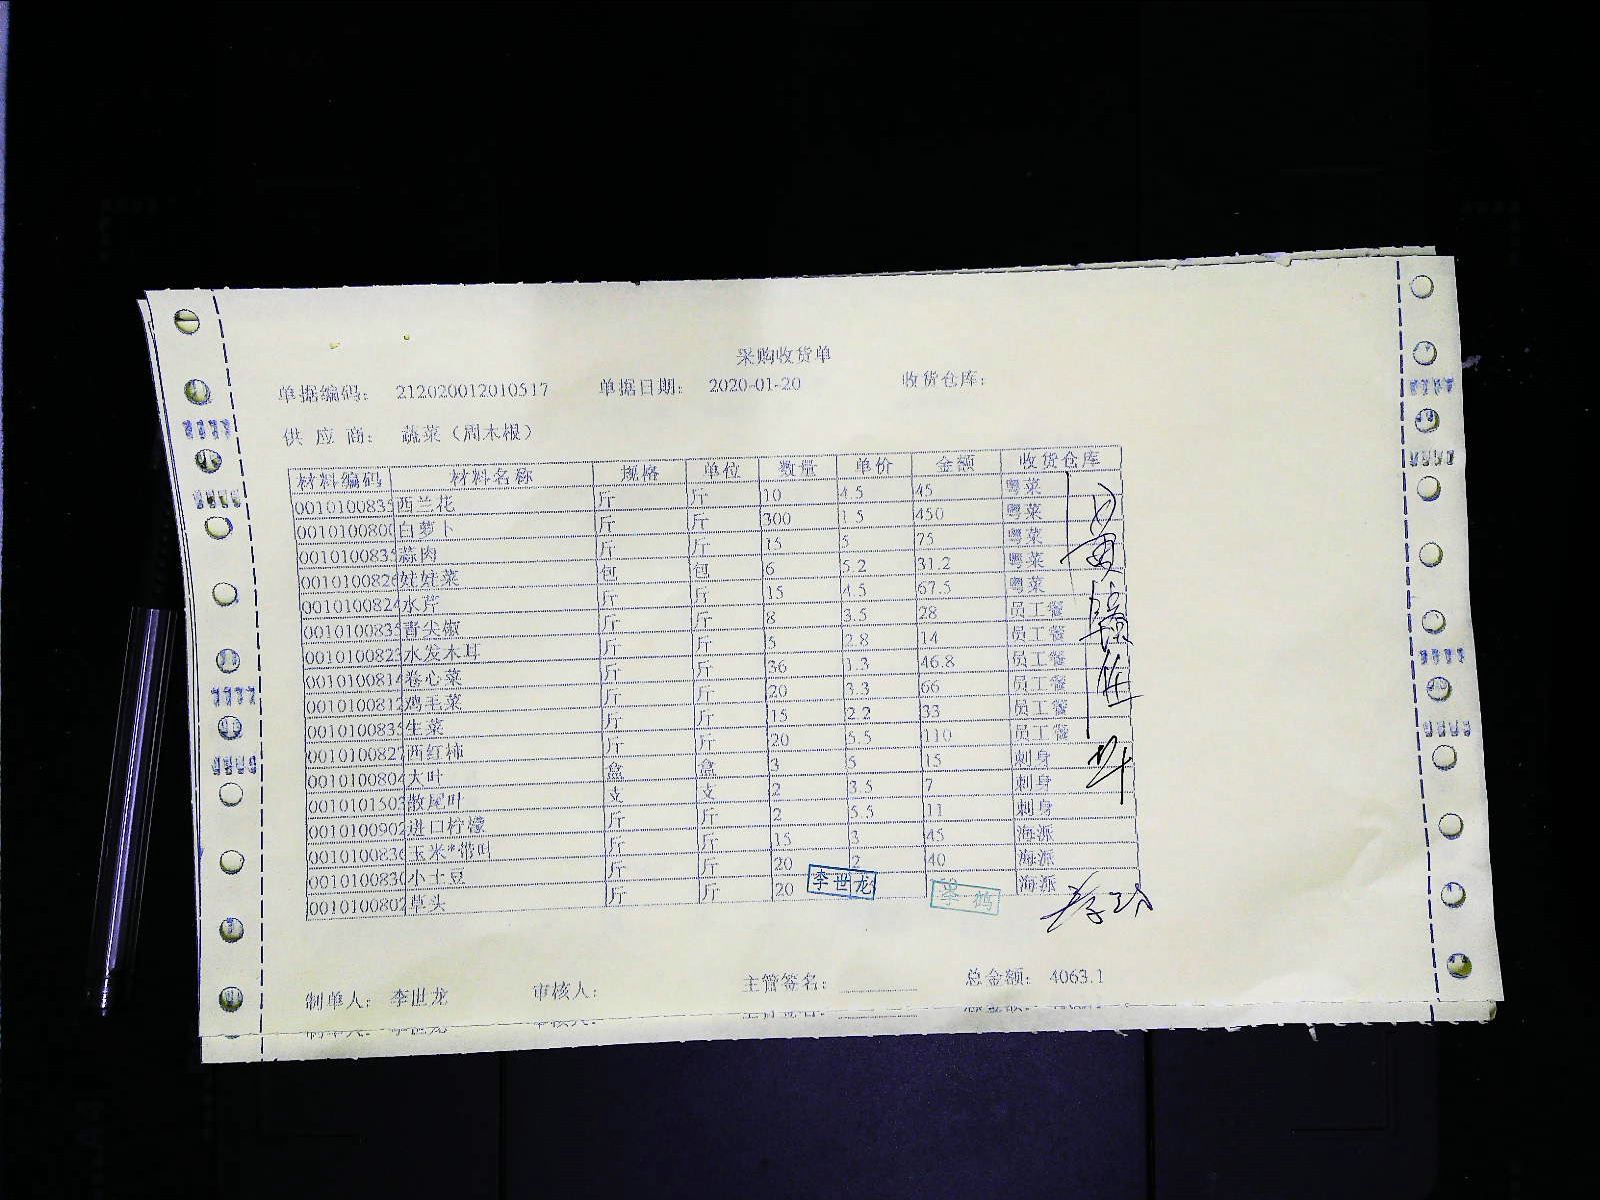 采购收货单
单据编码： 212020012010517 单据日期： 2020-01-20 收货仓库：
供 应 商： 蔬菜（周木根）
材料编码 材料名称 规格 单位 数量 单价 金额 收货仓库
0010100835 西兰花 斤 斤 10 4.5 45 粤菜
0010100800 白萝卜 斤 斤 300 1.5 450 粤菜
0010100835 蒜肉 斤 斤 15 5 75 粤菜
0010100826 娃娃菜 包 包 6 5.2 31.2 粤菜
0010100824 水芹 斤 斤 15 4.5 67.5 粤菜
0010100835 青尖椒 斤 斤 8 3.5 28 员工餐
0010100823 水发木耳 斤 斤 5 2.8 14 员工餐
0010100814 卷心菜 斤 斤 36 1.3 46.8 员工餐
0010100812 鸡毛菜 斤 斤 20 3.3 66 员工餐
0010100835 生菜 斤 斤 15 2.2 33 员工餐
0010100827 西红柿 斤 斤 20 5.5 110 员工餐
0010100804 大叶 盒 盒 3 5 15 刺身
0010101503 散尾叶 支 支 2 3.5 7 刺身
0010100902 进口柠檬 斤 斤 2 5.5 11 刺身
0010100836 玉米*带叶 斤 斤 15 3 45 海派
0010100830 小土豆 斤 斤 20 2 40 海派
0010100802 草头 斤 斤 20 海派
李世龙
制单人： 李世龙 审核人： 主管签名： 总金额： 4063.1